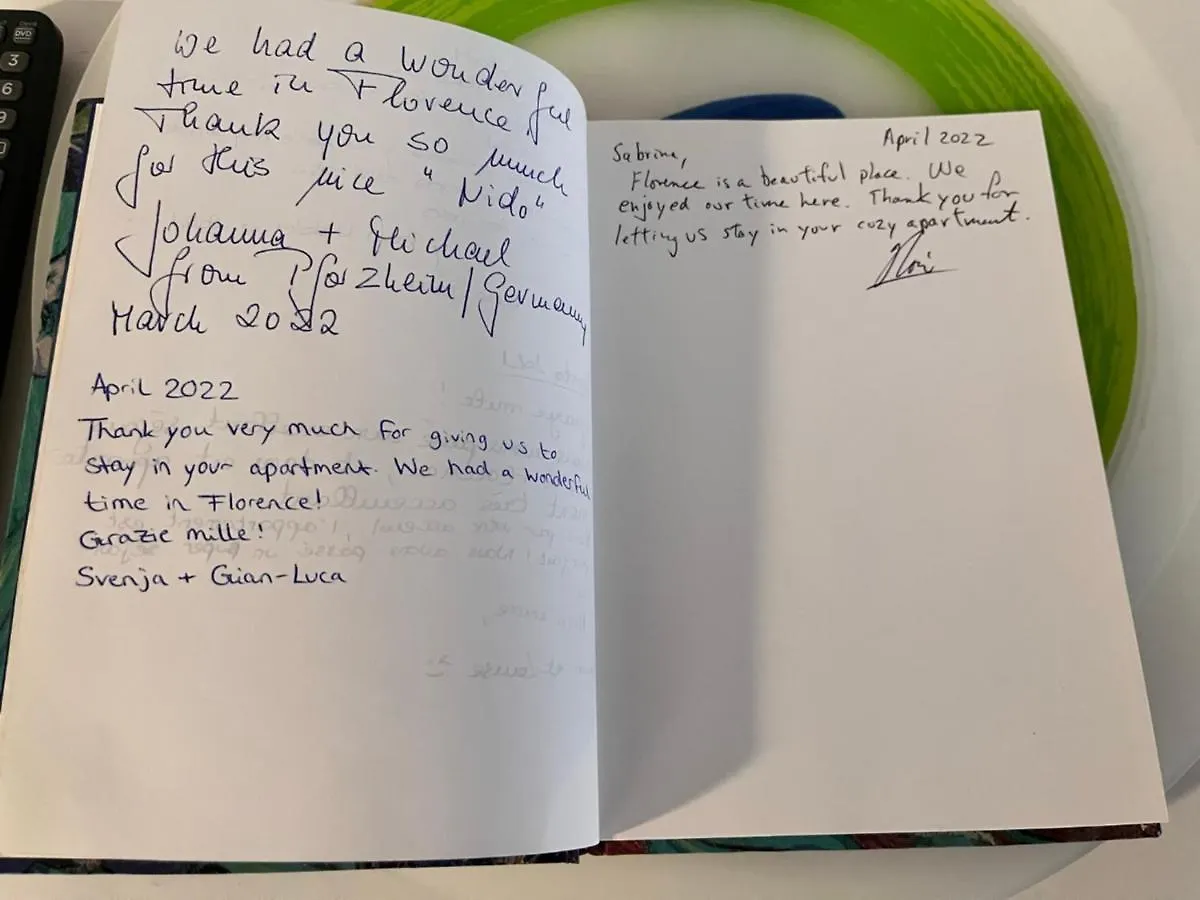 We had a wonderful
time in Florence,
Thank you so much
for this nice "Nido"
Johanna + Michael
from Pforzheim/Germany
March 2022
April 2022
Thank you very much for giving us to
stay in your apartment. We had a wonderful
time in Florence!
Grazie mille!
Svenja + Gian-Luca
April 2022
Sabrina,
Florence is a beautiful place. We
enjoyed our time here. Thank you for
letting us stay in your cozy apartment.
DVD
3
6
9